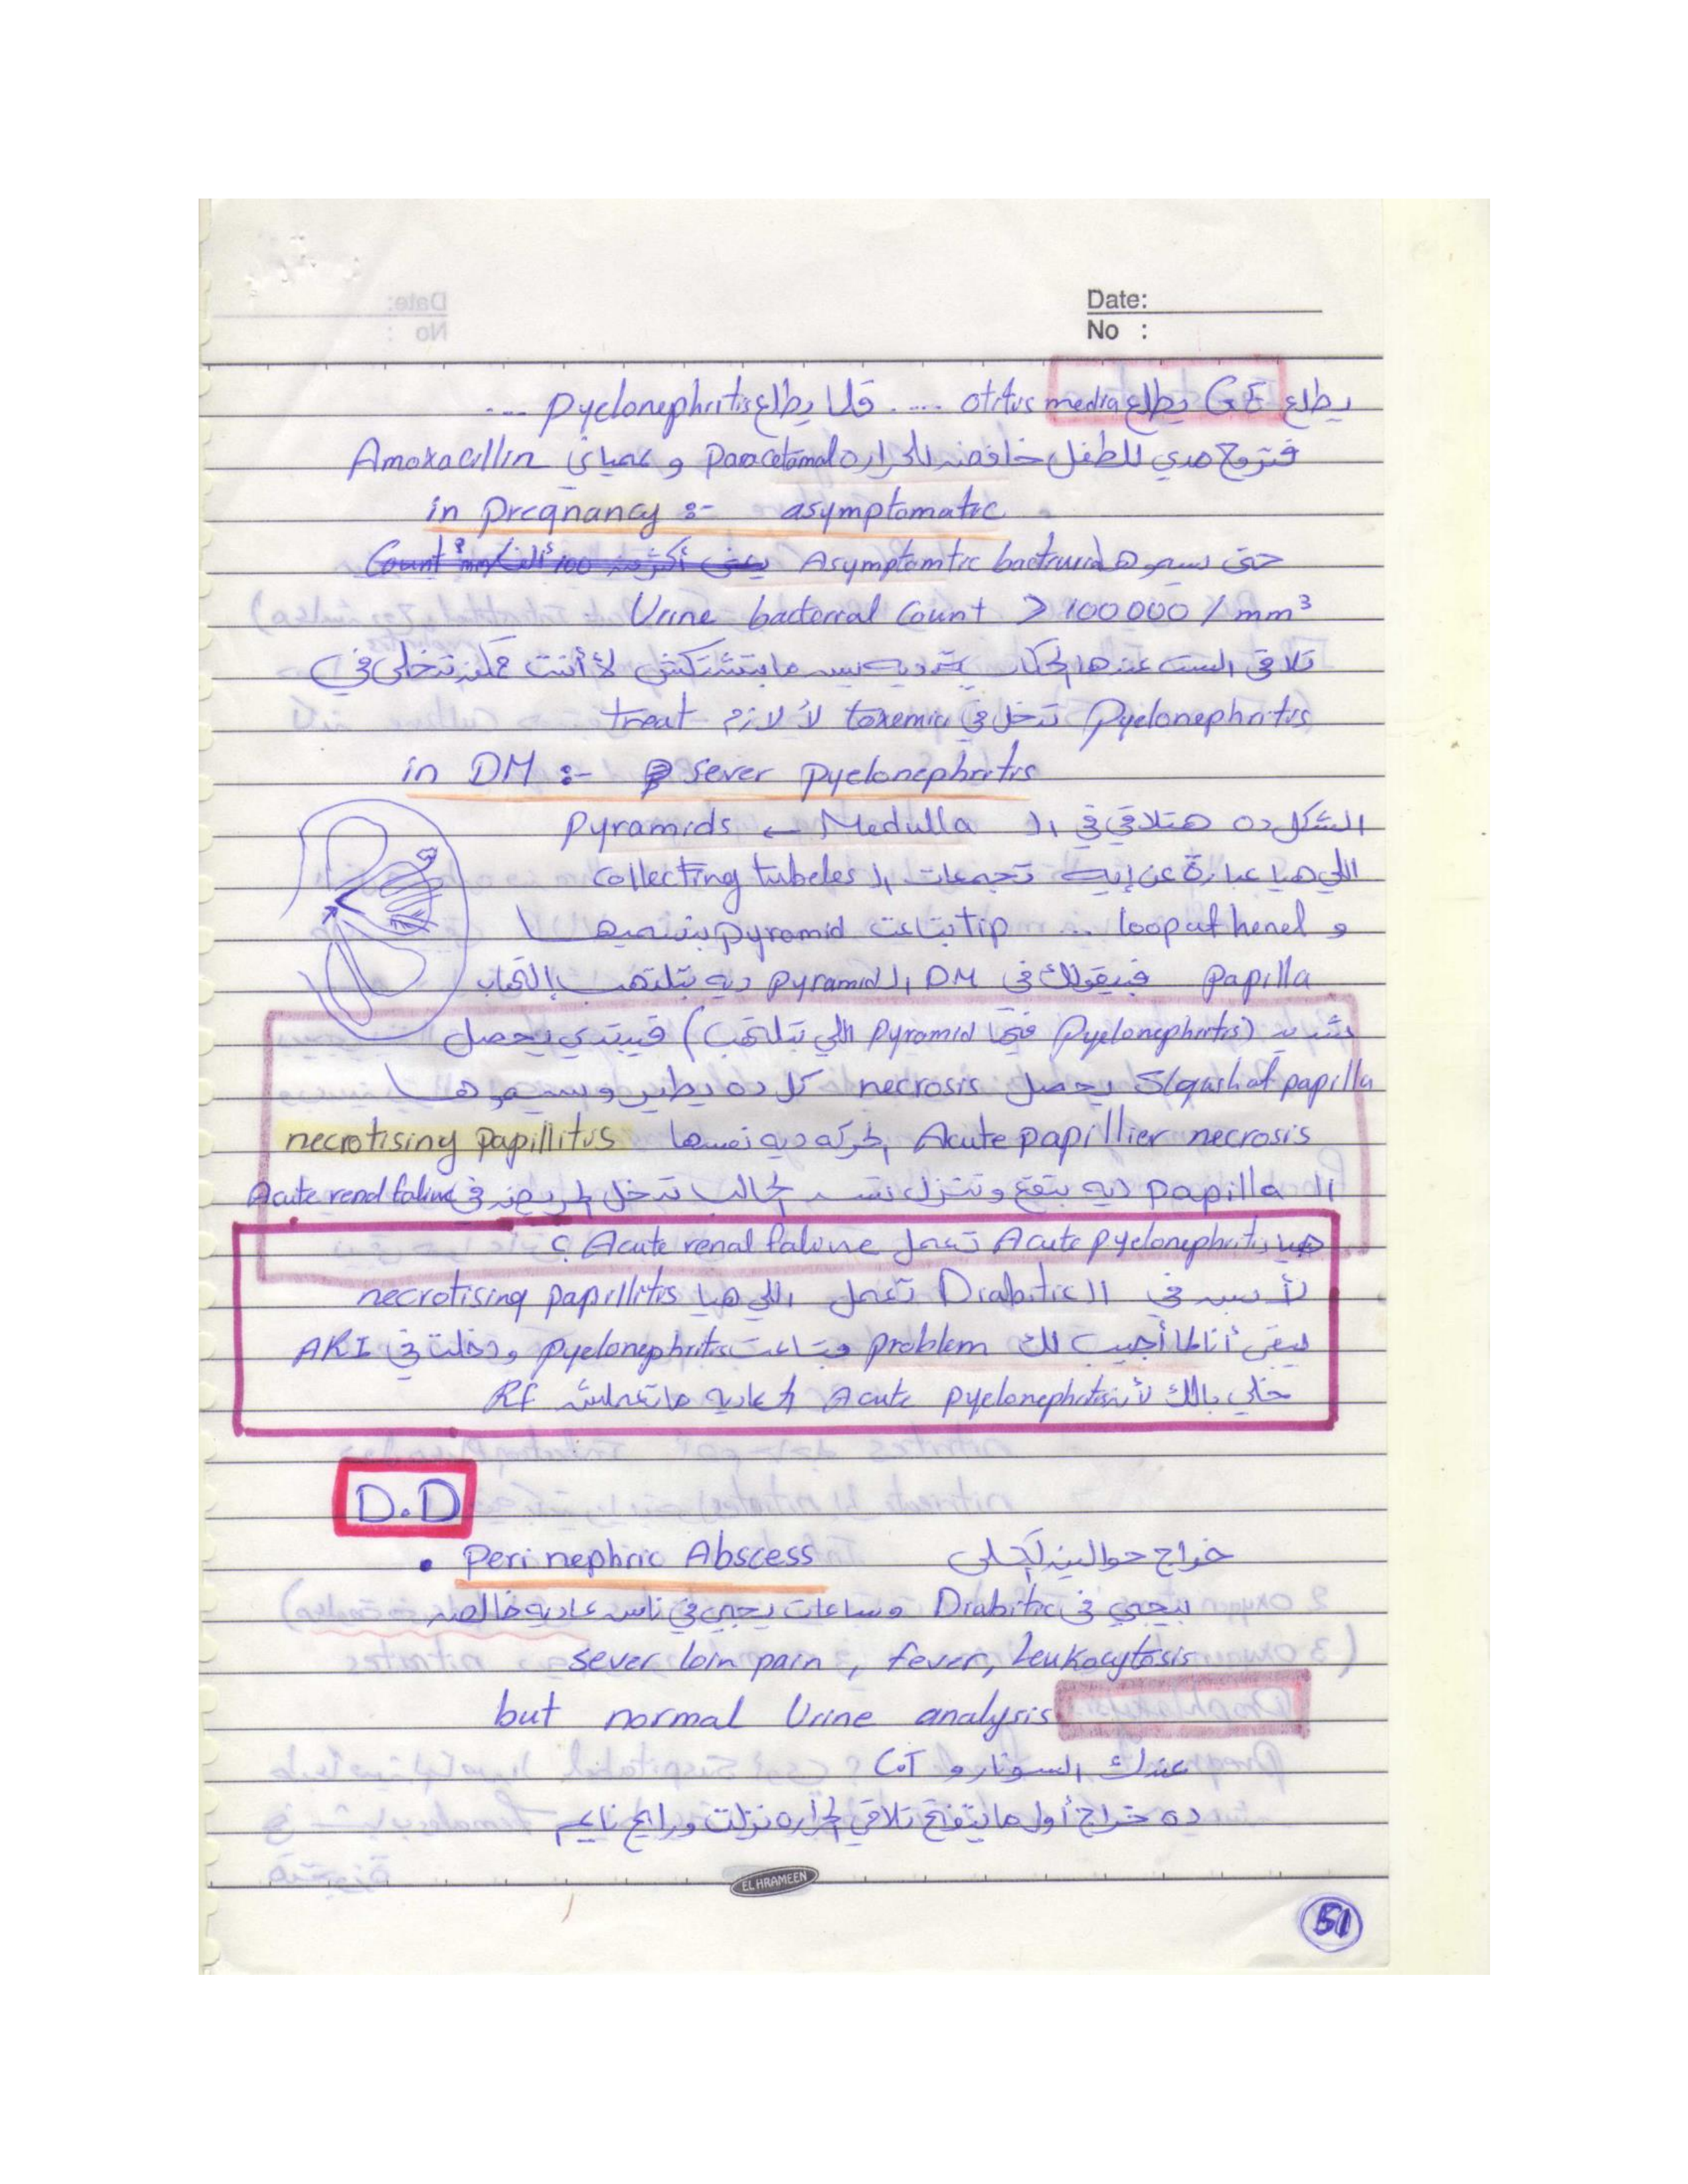 Date:
No :
يطلع GE يطلع otitus media ..... قلنا يطلع pyelonephritis ....
فتروح مدي للطفل خافضه للحراره Paracetamol و عمياني Amoxacillin
in Pregnancy :- asymptomatic
حتى سموها Asymptomtic bacteruria
Urine bacterial Count > 100 000 / mm³
تلاقى الست عندها الحكاية ديه بس مابتشتكش لأ أنت تدخلي في
Pyelonephritis تدخل في toxemia لأ لازم treat
in DM :- sever pyelonephritis
الشكل ده هتلاقي في ال Medulla ← Pyramids
اللي هيا عبارة عن إيه تجمعات ال collecting tubeles
و loop of henel ... tip بتاعت pyramid بنسميها
papilla فبيقولك في DM ال pyramid ديه بتلتهب إلتهاب
شديد (Pyelonephritis فيها pyramid اللي بتلتهب) فيبتدي يحصل
Slaugh of papilla يحصل necrosis كل ده يطير وسموها
Acute papillier necrosis الحركه ديه نسمها necrotising papillitis
ال papilla ديه بتقع وتنزل تسد الحالب تدخل المريض في Acute renal falure
هيا Acute pyelonephritis تعمل Acute renal falure ؟
لأ بس في ال Diabitic تعمل اللي هيا necrotising papillitis
يبقى أنا لما أجيب لك problem بتاعت pyelonephritis ودخلت في ARI
خلي بالك لأن Acute pyelonephritis العاديه ماتعملش RF
D.D
• Peri nephric Abscess خراج حوالين الكلى
بيجي في Diabitic وساعات يجي في ناس عاديه خالص
sever loin pain, fever, leukocytosis
but normal Urine analysis
عندك السونار و C.T
ده خراج أول ما يتفتح تلاقي الحراره نزلت ورايح نايم
EL HRAMEEN
51